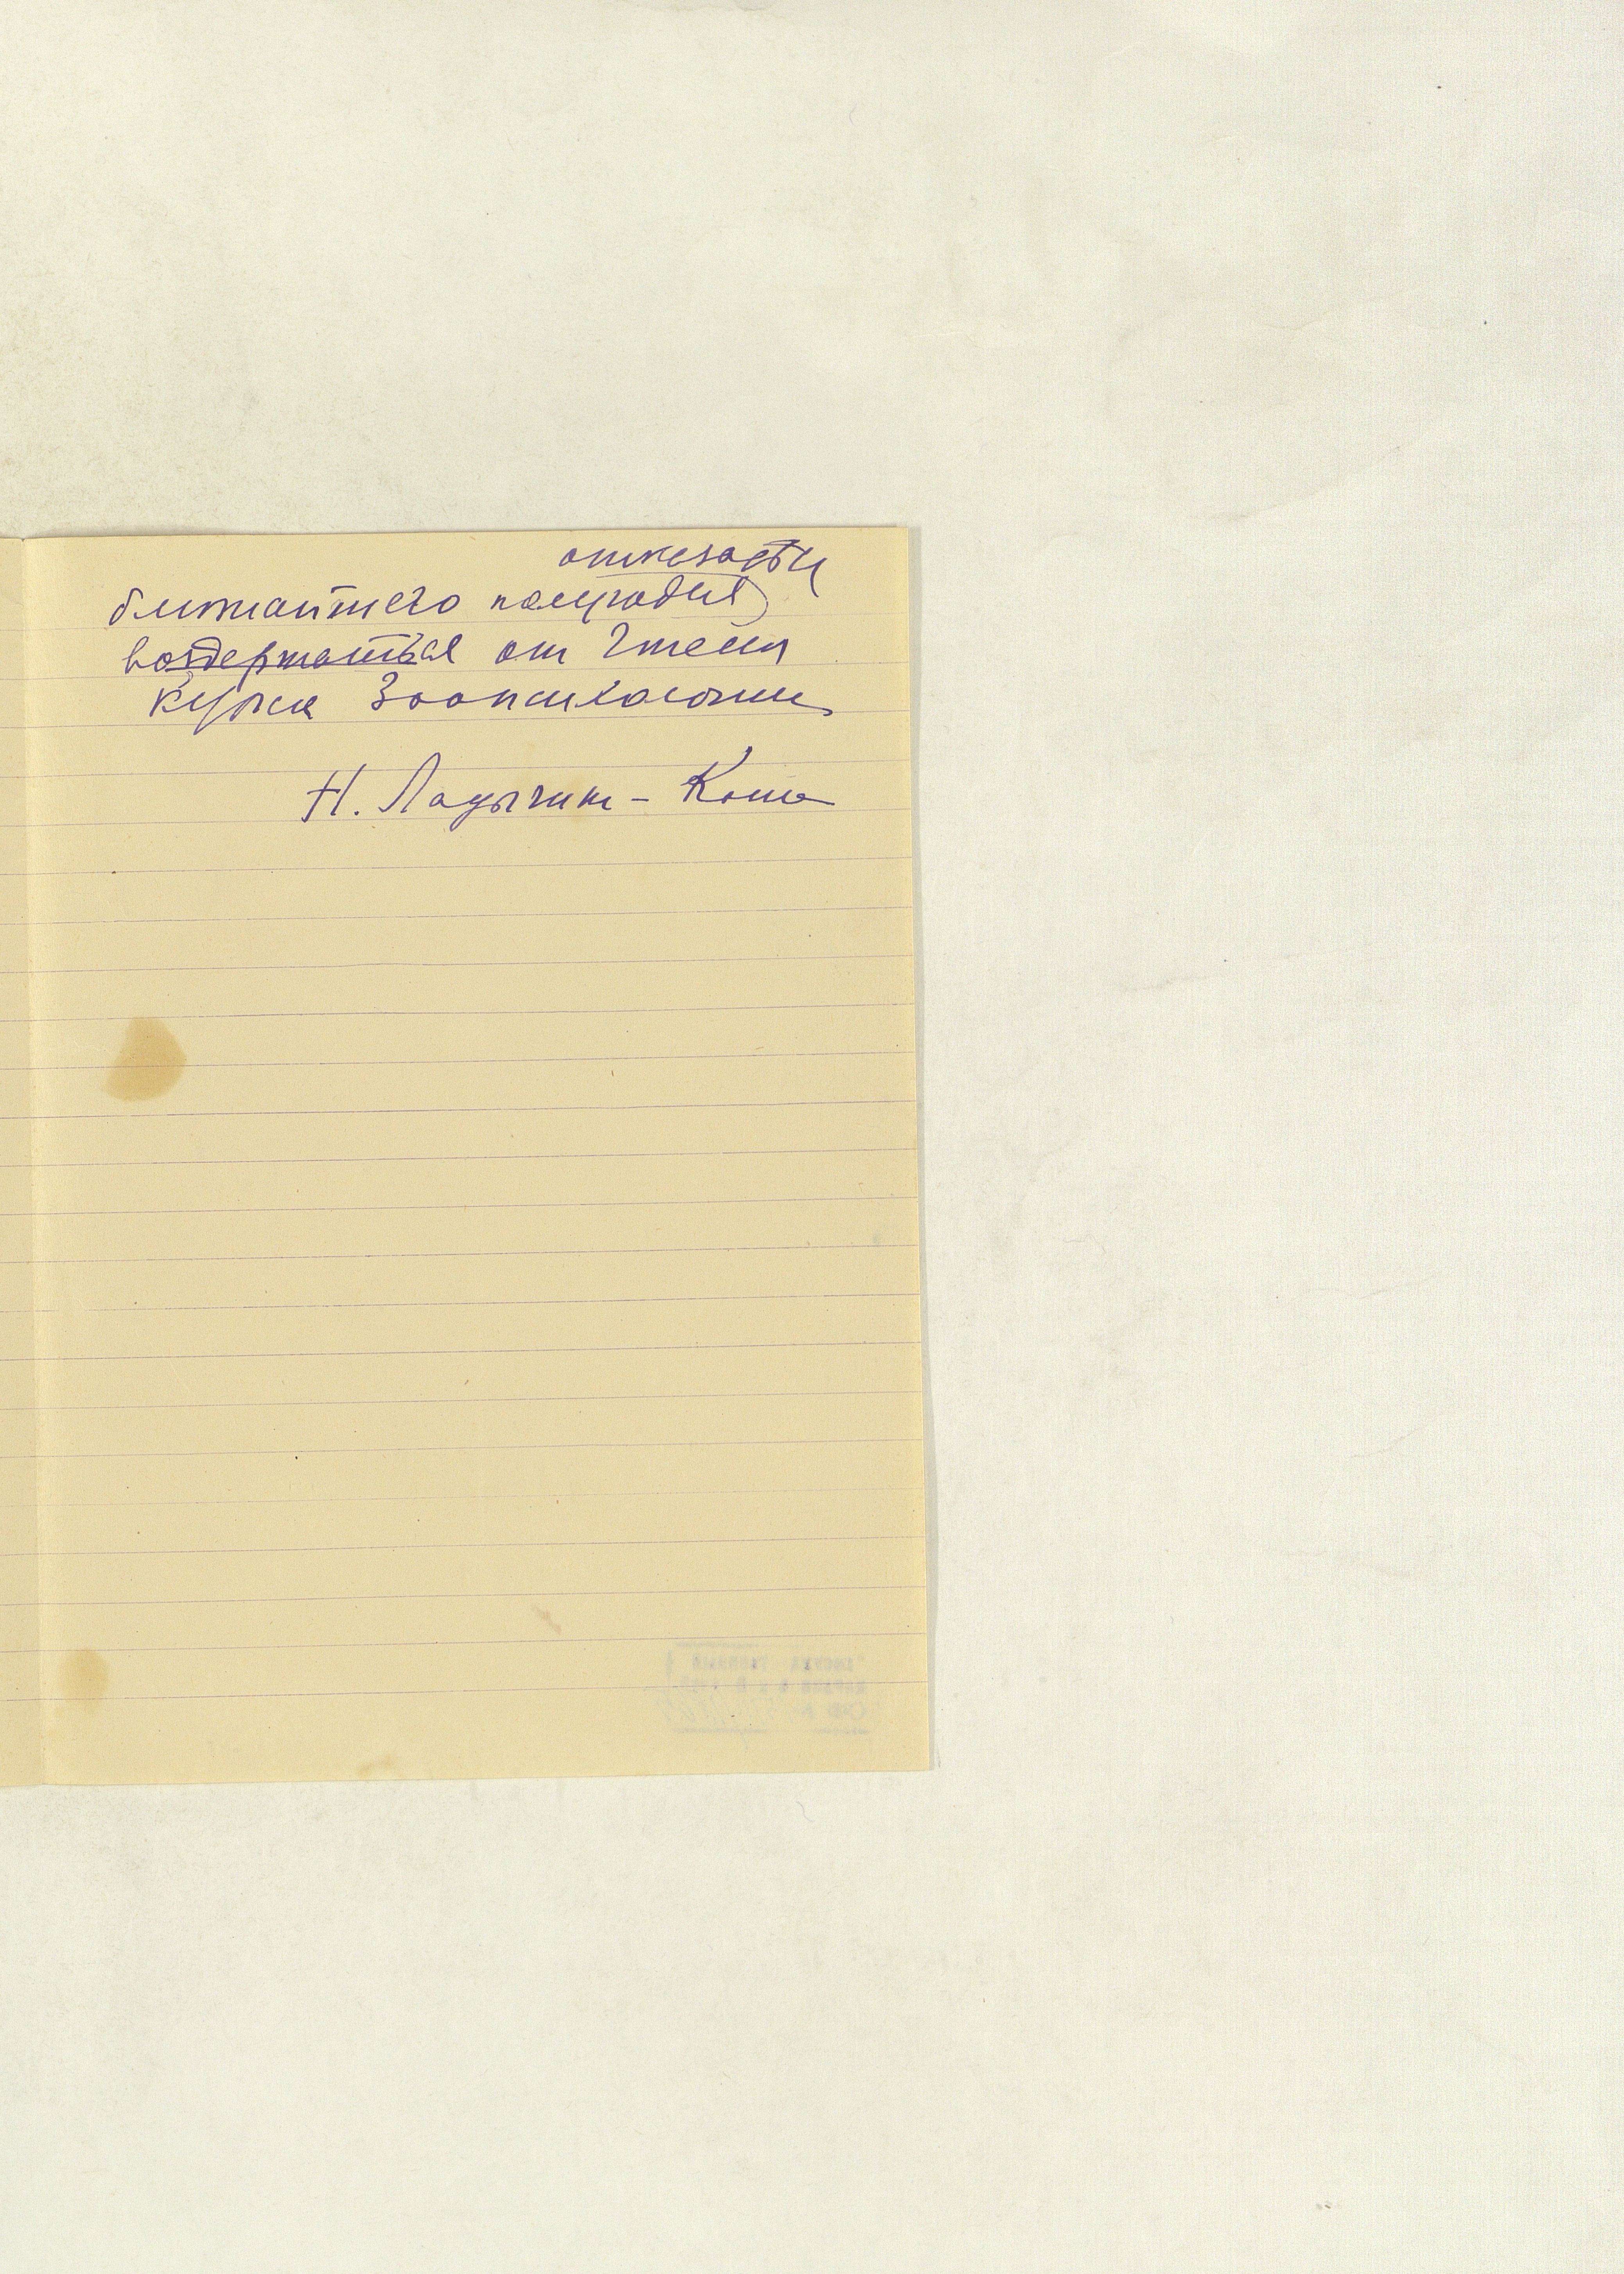 отказаться
ближайшего полугодия
воздержаться от чтения
курса Зоопсихологии
Н. Ладыгина-Котс